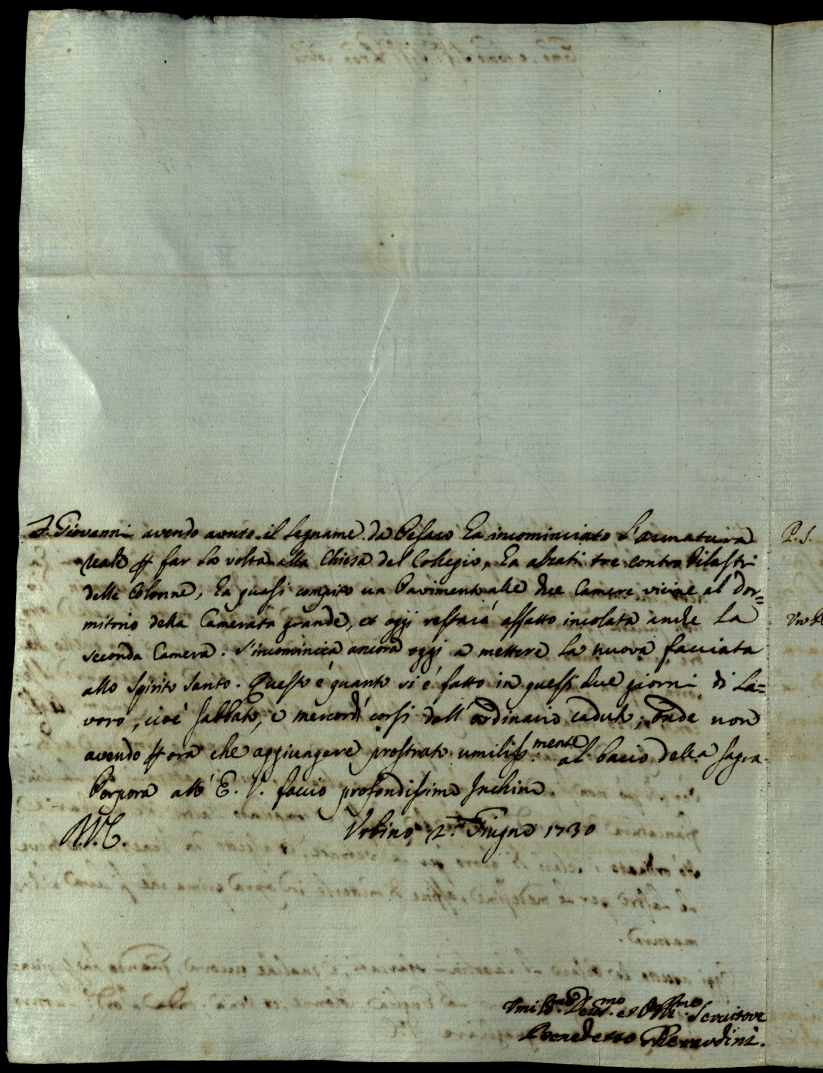 F. Giovanni avendo avuto il legname da Pesaro ha incominciato l'armatura
reale per far la volta alla Chiesa del Collegio, ha alzati tre contro Pilastri
delle Colonne, ha quasi compito un Pavimento alle due Camere vicine al Dor=
mitorio della Camerata grande, et oggi restarà affatto incolata anche la
seconda Camera. S'incomincia ancora oggi a mettere la nuova facciata
allo Spirito Santo. Questo è quanto si è fatto in questi due giorni di La=
voro, cioè Sabbato, e mercordì corsi dall'ordinario caduto; onde non
avendo per ora che aggiungere prostrato umiliss.mente al bacio della Sagra
Porpora all' E. V. faccio profondissimo Inchino.
Urbino 2. Giugno 1730
P. S.
Umil.mo Dev.mo et Obb.mo Servitore
Benedetto